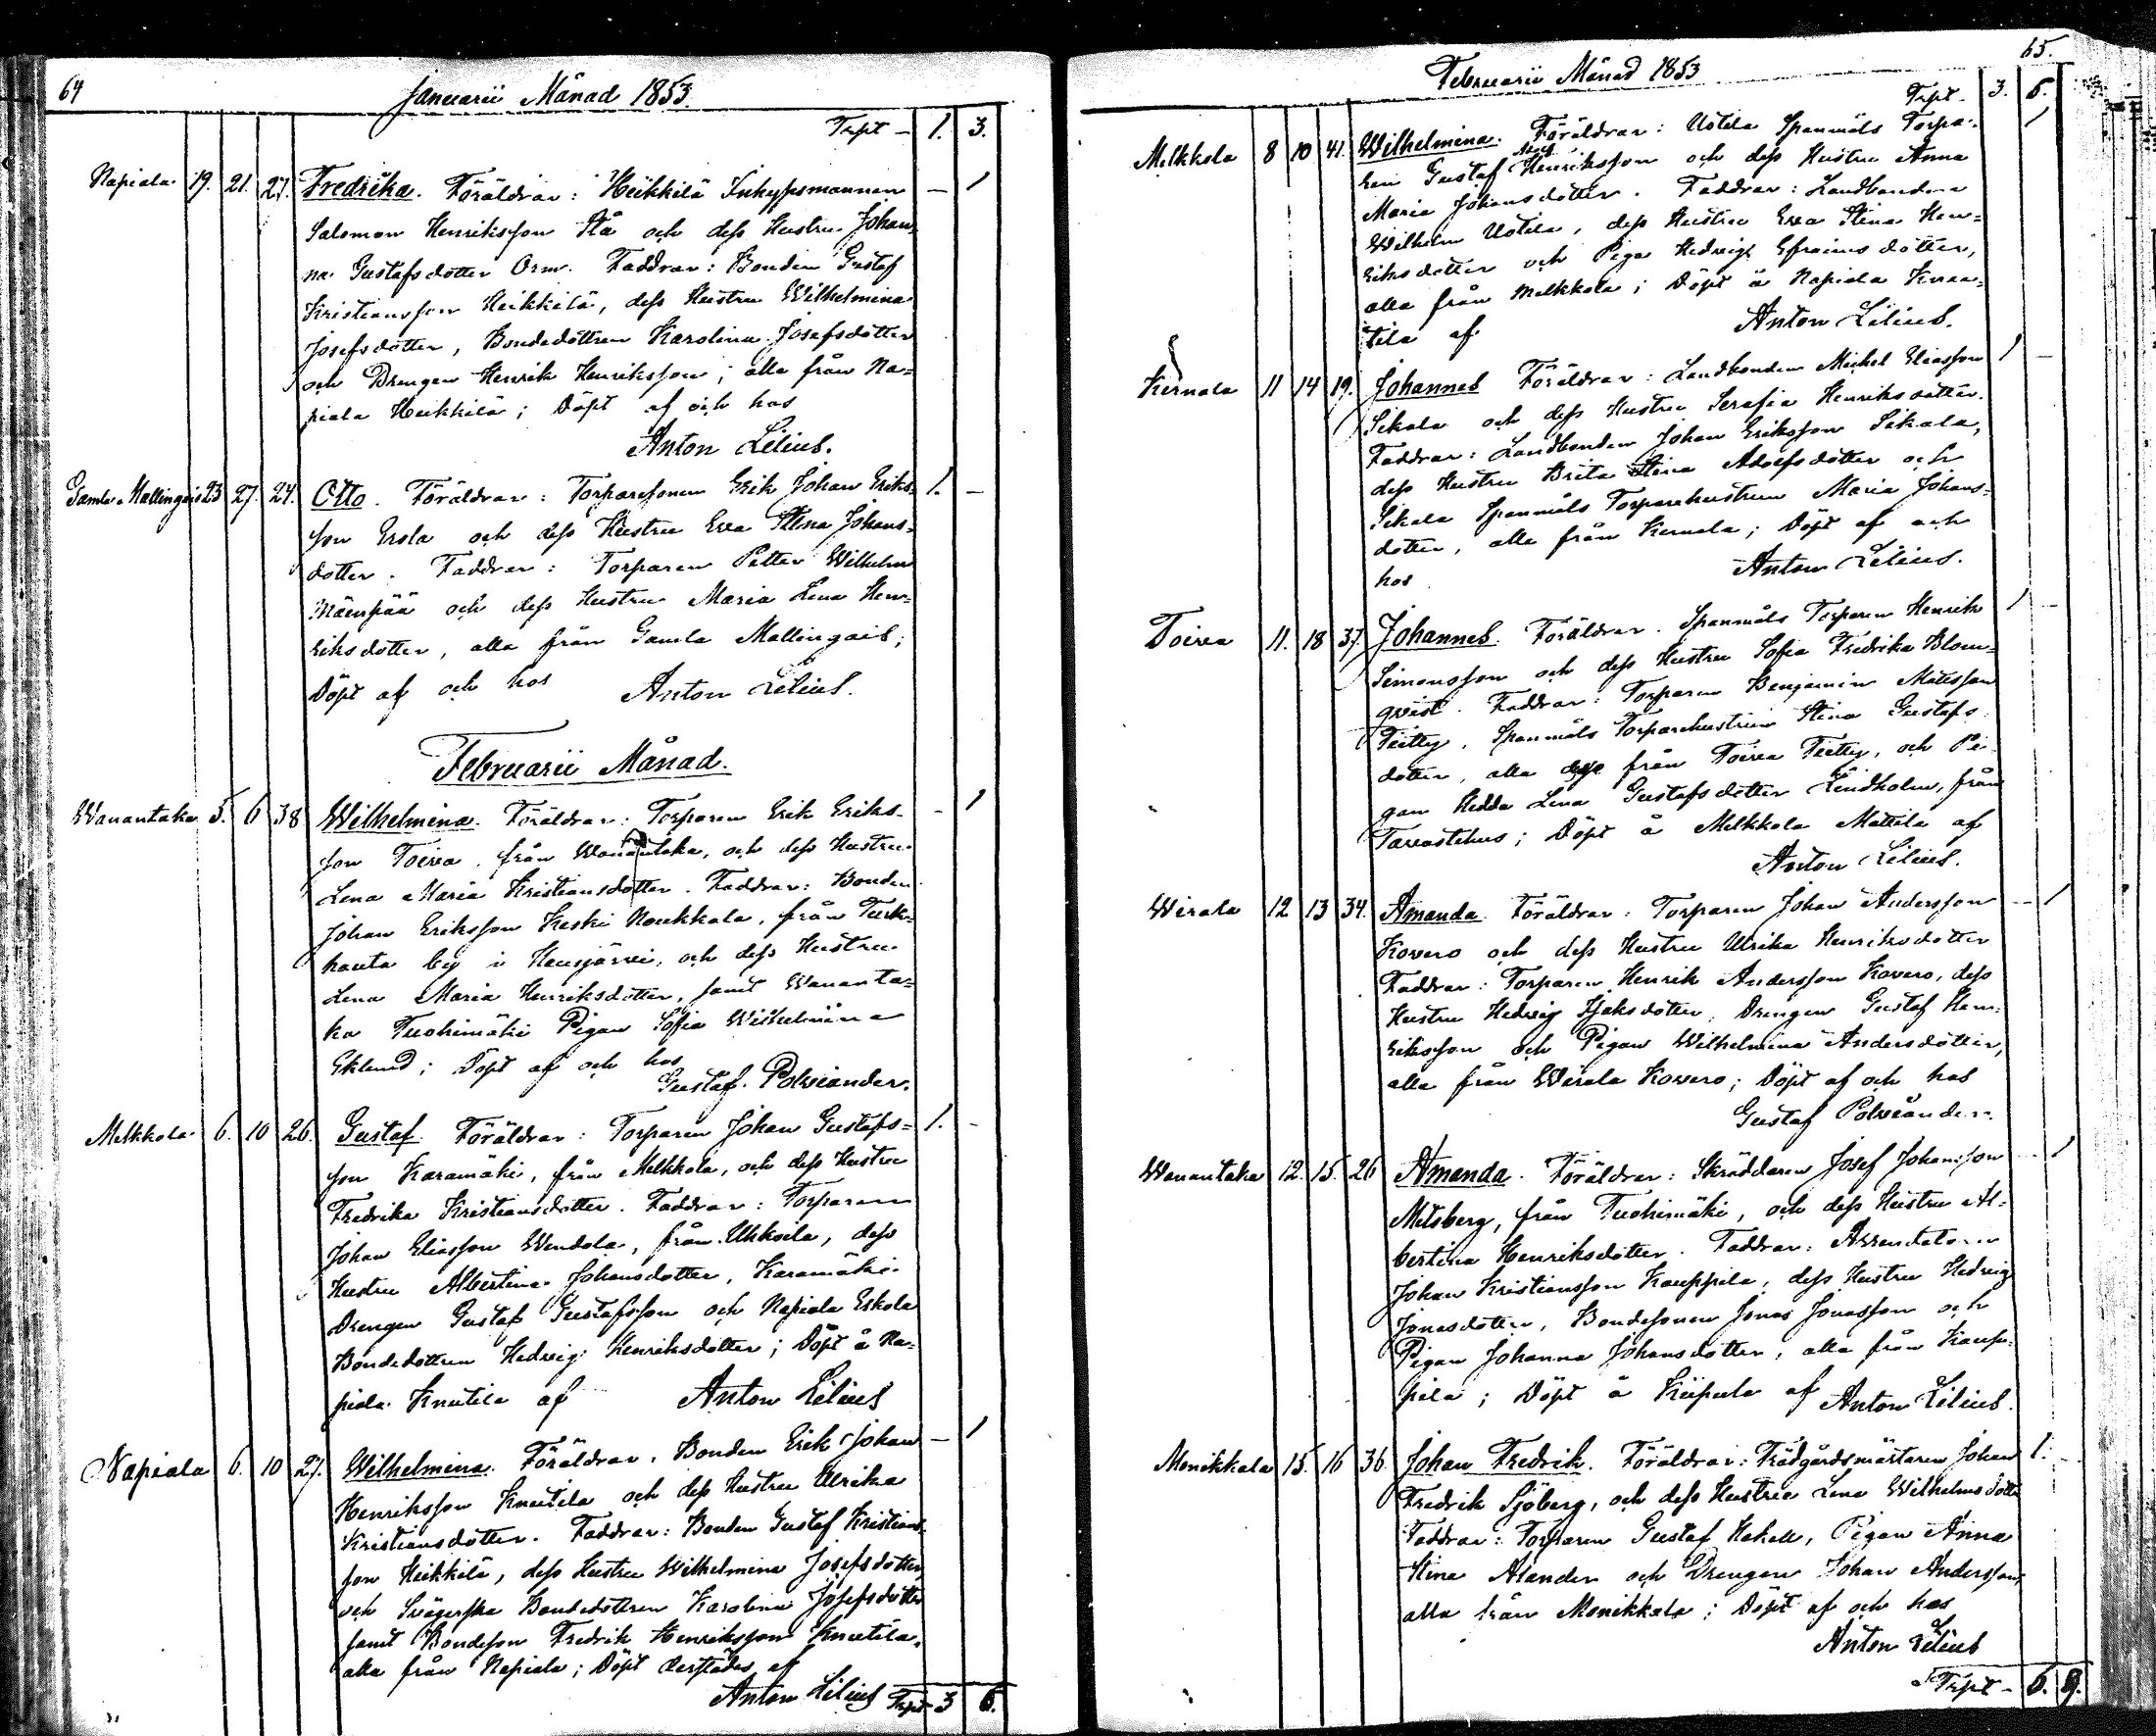 64
Januarii Månad 1853.
Trpt - 1. 3.
Napiala 19. 21. 27. Fredrika. Föräldrar: Heikkilä Inhysmannen — 1
Salomon Henriksson Stå och dess Hustru Johan-
na Gustafsdotter Orm. Faddrar: Bonden Gustaf
Kristiansson Heikkilä, dess Hustru Wilhelmina
Josefsdotter, Bondedottren Karolina Josefsdotter
och Drengen Henrik Henriksson; alla från Na-
piala Heikkilä; Döpt af och hos
Anton Lilius.
Gamla Mallingais 23 27. 24. Otto. Föräldrar: Torparesonen Erik Johan Eriks- 1. —
son Erola och dess Hustru Eva Stina Johans-
dotter. Faddrar: Torparen Petter Wilhelm
Mäenpää och dess Hustru Maria Lena Hen-
riksdotter, alla från Gamla Mallingais;
Döpt af och hos Anton Lilius.
Februarii Månad.
Wanantaka 5. 6 38 Wilhelmina. Föräldrar: Torparen Erik Eriks- — 1
son Toivia, från Wanantaka, och dess Hustru
Lena Maria Kristiansdotter. Faddrar: Bonden
Johan Eriksson Keski Noukkala, från Turk-
hauta by i Hausjärvi, och dess Hustru
Lena Maria Henriksdotter, samt Wananta-
ka Tuohimäki Pigan Sofia Wilhelmina
Eklund; Döpt af och hos
Gustaf Polviander.
Melkkola 6. 10 26. Gustaf. Föräldrar: Torparen Johan Gustafs- 1. —
son Karamäki, från Melkkola, och dess Hustru
Fredrika Kristiansdotter. Faddrar: Torparen
Johan Eliasson Wendola, från Uhkoila, dess
Hustru Albertina Johansdotter, Karamäki
Drengen Gustaf Gustafsson och Napiala Eskola
Bondedottren Hedvig Henriksdotter; Döpt å Na-
piala Knutila af Anton Lilius
Napiala 6. 10 27. Wilhelmina. Föräldrar: Bonden Erik Johan — 1
Henriksson Knutila och dess Hustru Ulrika
Kristiansdotter. Faddrar: Bonden Gustaf Kristians-
son Heikkilä, dess Hustru Wilhelmina Josefsdotter
och Svägerska Bondedottren Karolina Josefsdotter
samt Bondeson Fredrik Henriksson Knutila,
alla från Napiala; Döpt derstädes af
Anton Lilius Trpt 3 6.
65.
Februarii Månad 1853
Trpt - 3. 6.
Melkkola 8 10 41. Wilhelmina. Föräldrar: Uotila Spanmåls Torpa- 1
ren Gustaf Henriksson och dess Hustru Anna
Maria Johansdotter. Faddrar: Landbonden
Wilhelm Uotila, dess Hustru Eva Stina Hen-
riksdotter och Piga Hedvig Efraimsdotter,
alla från Melkkola; Döpt å Napiala Knu-
tila af Anton Lilius.
Kernala 11 14 19. Johannes Föräldrar: Landbonden Mickel Eliasson 1 —
Sikala och dess Hustru Serafia Henriksdotter.
Faddrar: Landbonden Johan Eriksson Sikala,
dess Hustru Brita Stina Adolfsdotter och
Sikala Spanmåls Torparehustrun Maria Johans-
dotter, alla från Kernala; Döpt af och
hos Anton Lilius.
Toivia 11. 18 37. Johannes. Föräldrar. Spanmåls Torparen Henrik 1 —
Simonsson och dess Hustru Sofia Fredrika Blom-
qvist. Faddrar: Torparen Benjamin Matsson
Teitty, Spanmåls Torparehustrun Stina Gustafs-
dotter, alla från Toivia Teitty, och Pi-
gan Hedda Lena Gustafsdotter Lindholm, från
Tavastehus; Döpt å Melkkola Mattila af
Anton Lilius.
Wirala 12 13 34. Amanda. Föräldrar: Torparen Johan Andersson — 1
Kovero och dess Hustru Ulrika Henriksdotter
Faddrar: Torparen Henrik Andersson Kovero, dess
Hustru Hedvig Isaksdotter, Drengen Gustaf Hen-
riksson och Pigan Wilhelmina Andersdotter,
alla från Wirala Kovero; Döpt af och hos
Gustaf Polviander.
Wanantaka 12. 15. 26 Amanda. Föräldrar: Skräddaren Josef Johansson — 1
Metsberg, från Tuohimäki, och dess Hustru Al-
bertina Henriksdotter. Faddrar: Arrendatorn
Johan Kristiansson Kauppila, dess Hustru Hedvig
Jonasdotter, Bondesonen Jonas Jonasson och
Pigan Johanna Johansdotter, alla från Kaup-
pila; Döpt å Kiipula af Anton Lilius.
Monikkala 15. 16 36. Johan Fredrik. Föräldrar: Trädgårdsmästaren Johan 1. —
Fredrik Sjöberg, och dess Hustru Lena Wilhelmsdotter
Faddrar: Torparen Gustaf Hakell, Pigan Anna
Stina Alander och Drengen Johan Andersson,
alla från Monikkala; Döpt af och hos
Anton Lilius
Trpt - 6. 9.